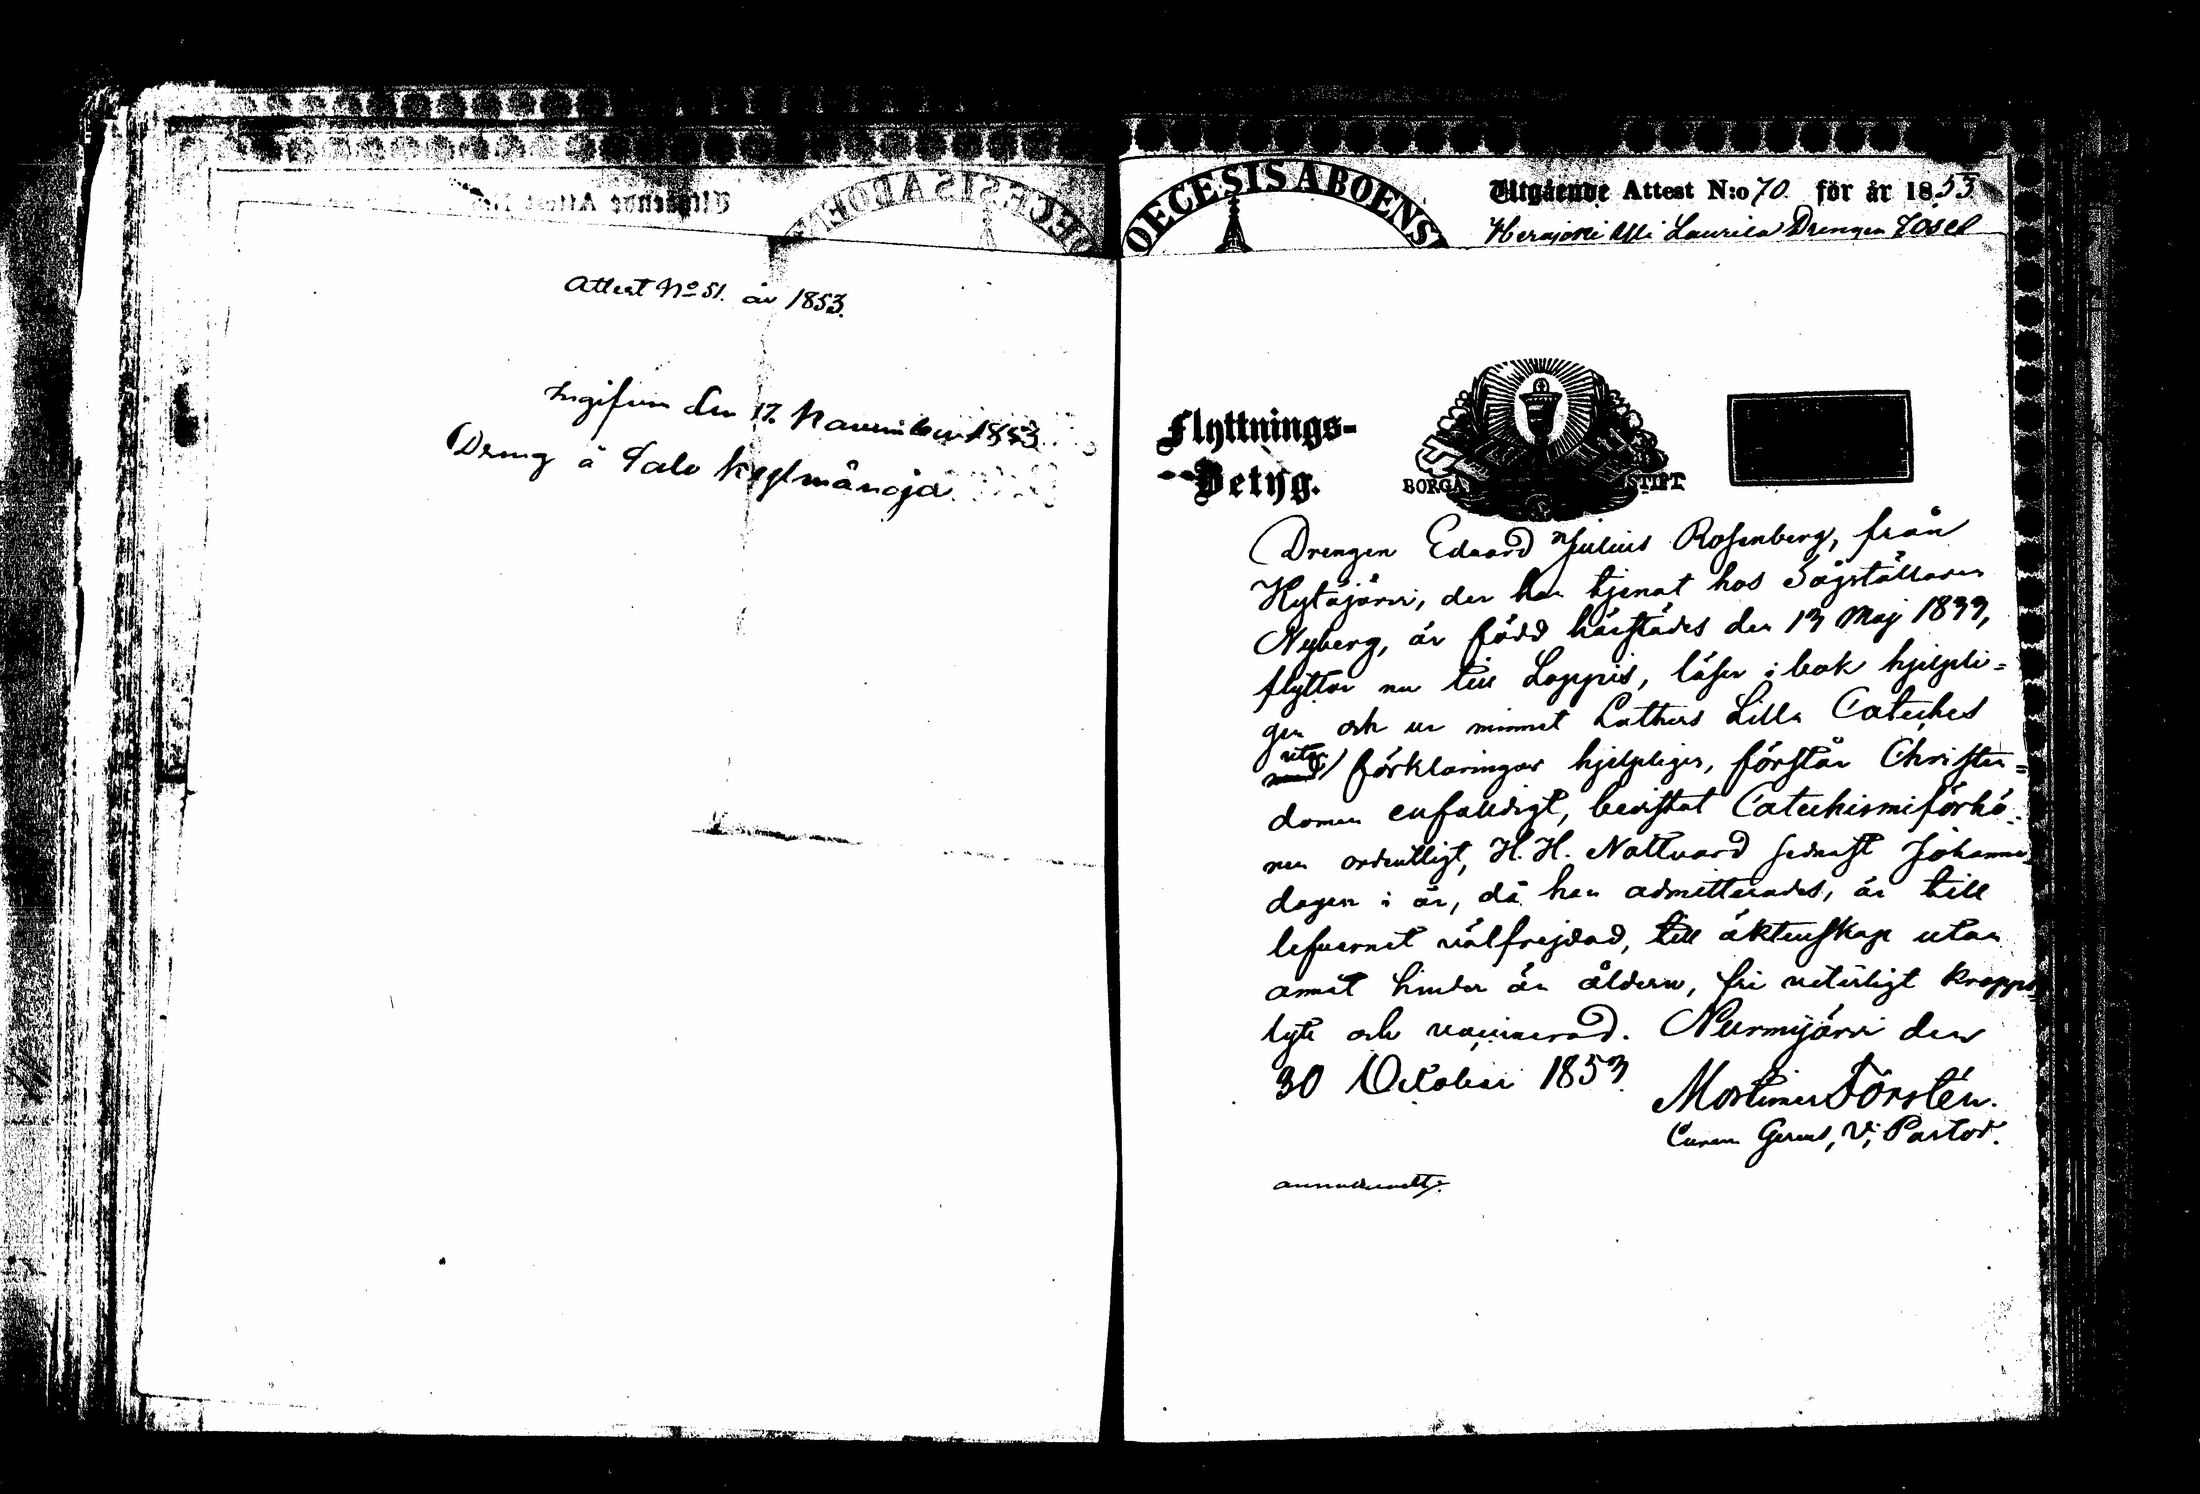 Attest No 51. år 1853.
Ingifven den 17. November 1853.
Dreng å Talo
DIOECESIS ABOENSIS
Utgående Attest N:o 70 för år 1853
Herajoki Laurila Drengen Josef
Flyttnings-
Betyg.
BORGÅ STIFT
Drengen Eduard Julius Rosenberg, från
Kytäjärvi, der han tjenat hos Sågställaren
Nyberg, är född härstädes den 13 Maj 1833,
flyttar nu till Loppis, läser i bok hjelpli=
gen och ur minnet Luthers Lilla Cateches
utan förklaringar hjelpligen, förstår Christen=
domen enfaldigt, bevistat Catechismiförhö=
ren ordentligt, H. H. Nattvard sednast Johanne
dagen i år, då han admitterades, är till
lefvernet välfrejdad, till äktenskap utan
annat hinder än åldern, fri veterligt kropps=
lyte och vaccinerad. Nurmijärvi den
30 October 1853.
Mortimer Forstén.
Curam Gerens, V. Pastor.